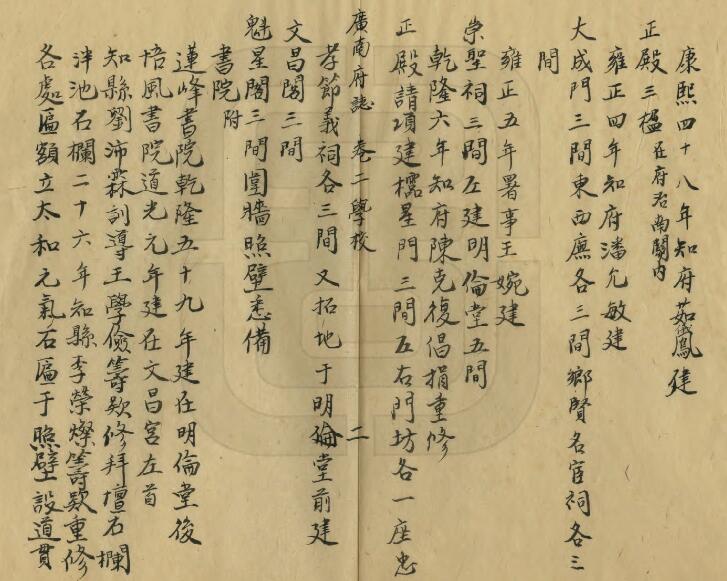 康熙四十八年知府茹儀鳳建
正殿三楹在府治南關內
雍正四年知府潘允敏建
大成門三間東西廡各三間鄉賢名宦祠各三
間
雍正五年署事王婉建
崇聖祠三間左建明倫堂五間
乾隆六年知府陳克復倡捐重修
正殿請項建櫺星門三間左右門坊各一座忠
廣南府誌 卷二學校 二
孝節義祠各三間又拓地于明倫堂前建
文昌閣三間
魁星閣三間圍牆照壁悉備
書院附
蓮峰書院乾隆五十九年建在明倫堂後
培風書院道光元年建在文昌宮左首
知縣劉沛霖訓導王學儉籌欵修拜壇石欄
泮池石欄二十六年知縣李榮燦籌欵重修
各處匾額立太和元氣石匾于照壁設道貫